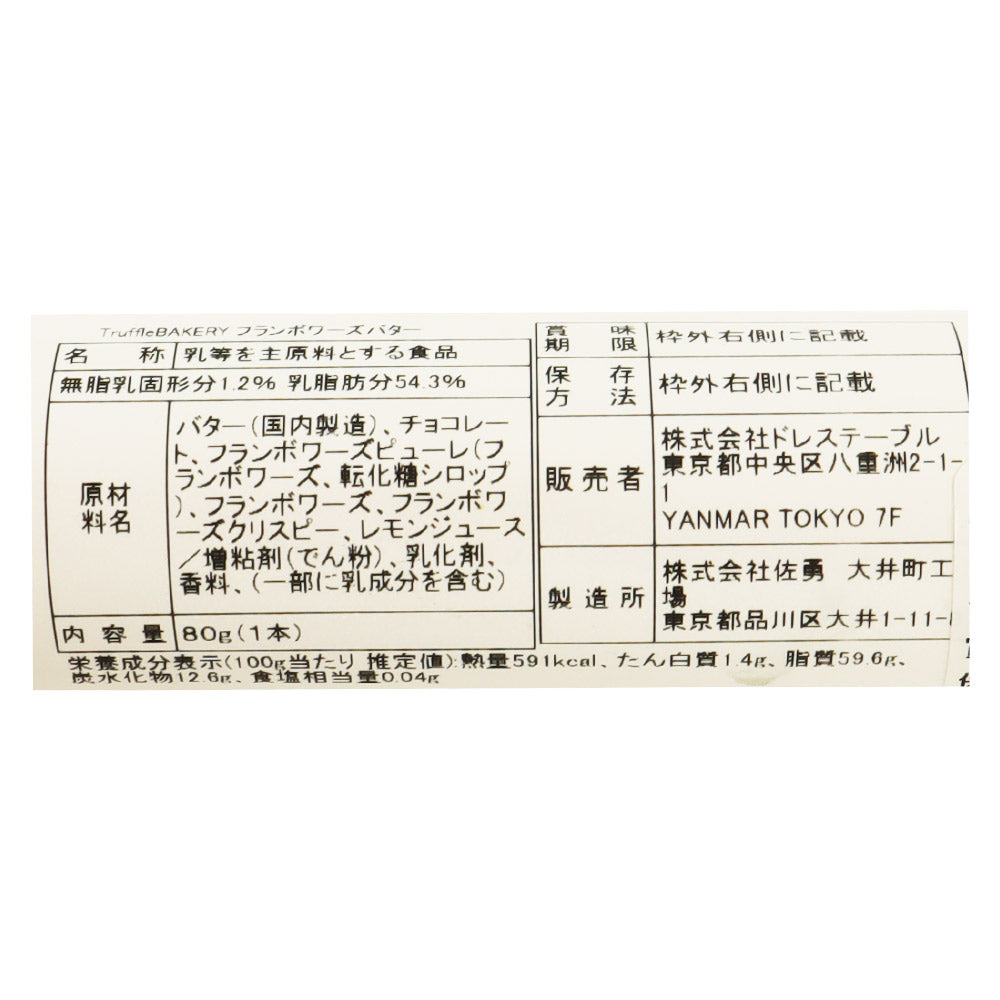 TruffleBAKERY フランボワーズバター
名 称 乳等を主原料とする食品
無脂乳固形分1.2% 乳脂肪分54.3%
原材
料名
バター(国内製造)、チョコレー
ト、フランボワーズピューレ(フ
ランボワーズ、転化糖シロップ
)、フランボワーズ、フランボワ
ーズクリスピー、レモンジュース
/増粘剤(でん粉)、乳化剤、
香料、(一部に乳成分を含む)
内容量 80g(1本)
賞 味
期 限
枠外右側に記載
保 存
方 法
枠外右側に記載
販売者
株式会社ドレステーブル
東京都中央区八重洲2-1-
1
YANMAR TOKYO 7F
製造所
株式会社佐勇 大井町工
場
東京都品川区大井1-11-
栄養成分表示(100g当たり 推定値):熱量591kcal、たん白質1.4g、脂質59.6g、
炭水化物12.6g、食塩相当量0.04g